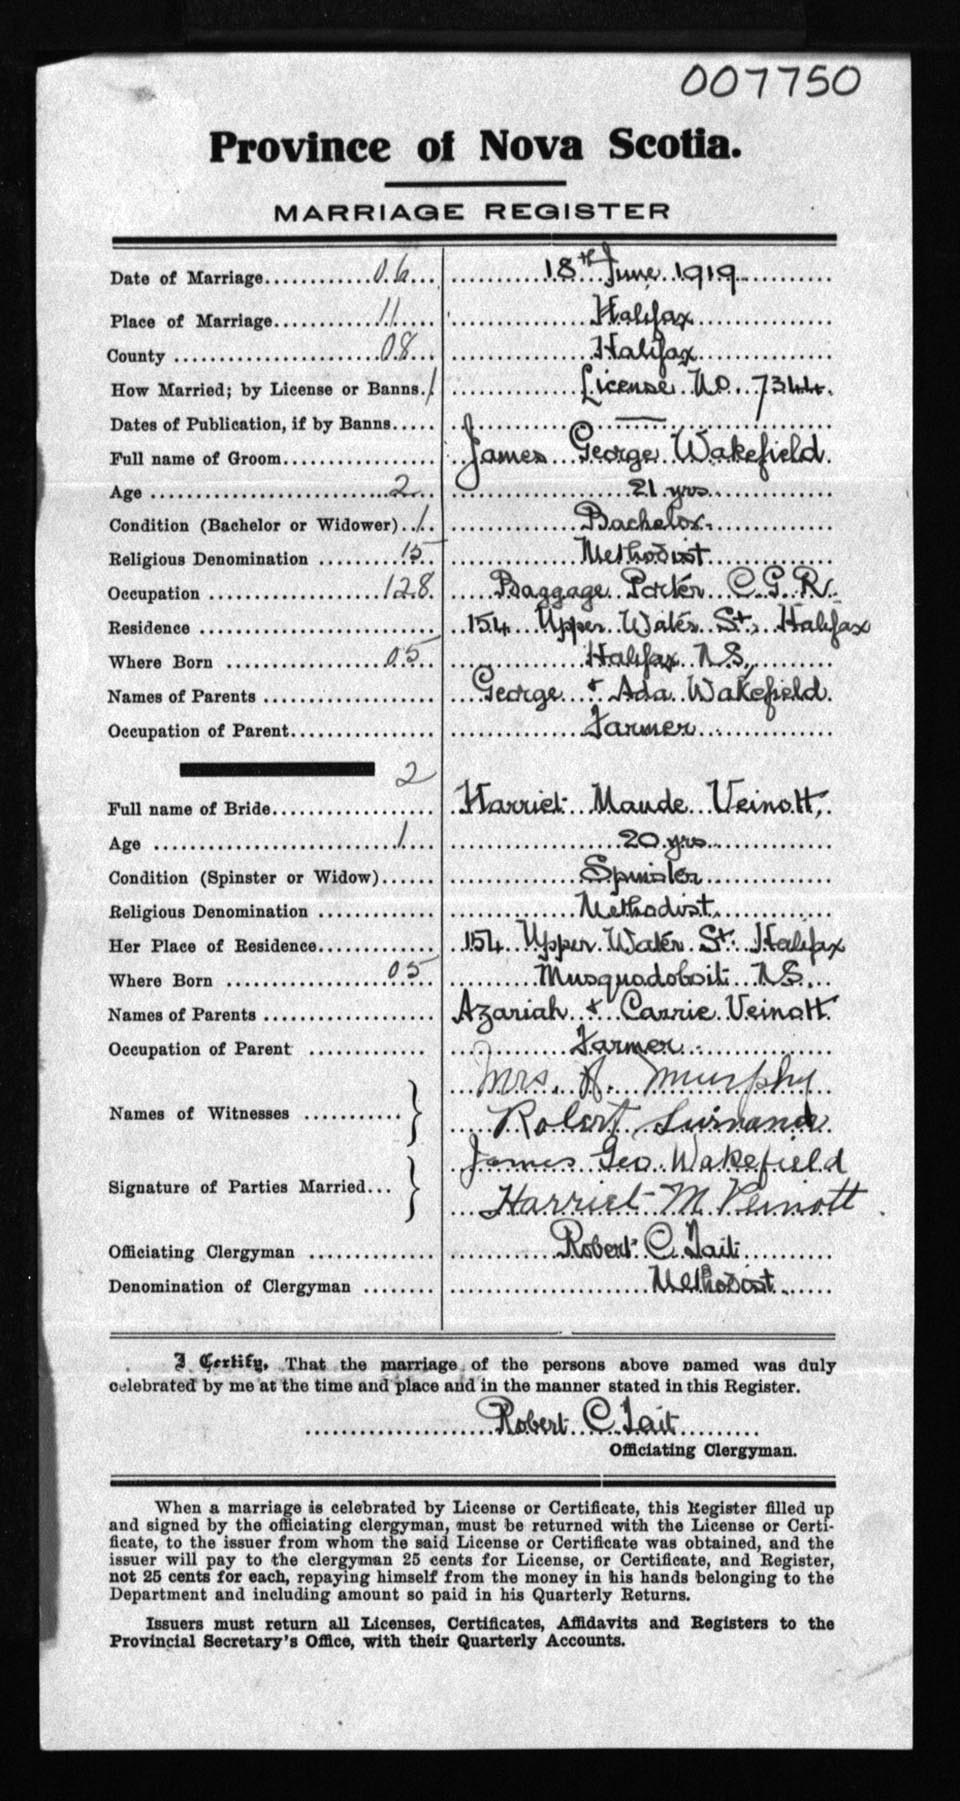 007750
Province of Nova Scotia.
MARRIAGE REGISTER
Date of Marriage 06 18th June 1919
Place of Marriage 11 Halifax
County 08 Halifax
How Married; by License or Banns 1 License No 7344
Dates of Publication, if by Banns —
Full name of Groom James George Wakefield
Age 2 21 yrs
Condition (Bachelor or Widower) 1 Bachelor
Religious Denomination 15 Methodist
Occupation 128 Baggage Porter C.G.R.
Residence 154 Upper Water St, Halifax
Where Born 05 Halifax N.S.
Names of Parents George & Ada Wakefield
Occupation of Parent Farmer
2
Full name of Bride Harriet Maude Veinott,
Age 1 20 yrs
Condition (Spinster or Widow) Spinster
Religious Denomination Methodist
Her Place of Residence 154 Upper Water St. Halifax
Where Born 05 Musquodoboit N.S.
Names of Parents Azariah & Carrie Veinott
Occupation of Parent Farmer
Mrs. A. Murphy
Names of Witnesses
Robert
James Geo Wakefield
Signature of Parties Married
Harriet M Veinott
Officiating Clergyman Robert C. Tait
Denomination of Clergyman Methodist
I Certify, That the marriage of the persons above named was duly
celebrated by me at the time and place and in the manner stated in this Register.
Robert C Tait
Officiating Clergyman.
When a marriage is celebrated by License or Certificate, this Register filled up
and signed by the officiating clergyman, must be returned with the License or Certi-
ficate, to the issuer from whom the said License or Certificate was obtained, and the
issuer will pay to the clergyman 25 cents for License, or Certificate, and Register,
not 25 cents for each, repaying himself from the money in his hands belonging to the
Department and including amount so paid in his Quarterly Returns.
Issuers must return all Licenses, Certificates, Affidavits and Registers to the
Provincial Secretary's Office, with their Quarterly Accounts.